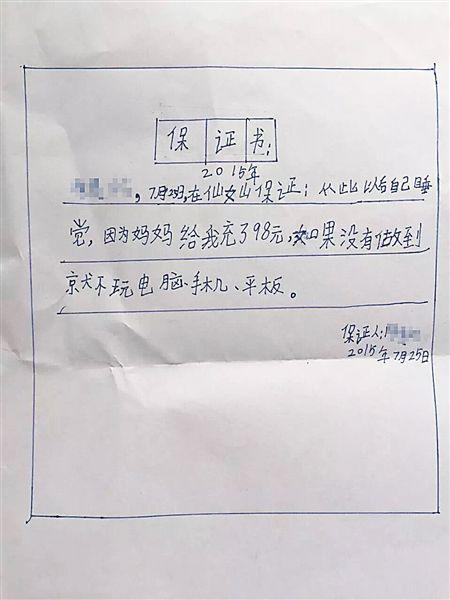 保证书:
2015年
,7月25日,在仙女山保证:从此以后自己睡
觉,因为妈妈给我充了98元,如果没有做到
京尤不玩电脑、手机、平板。
保证人:
2015年7月25日